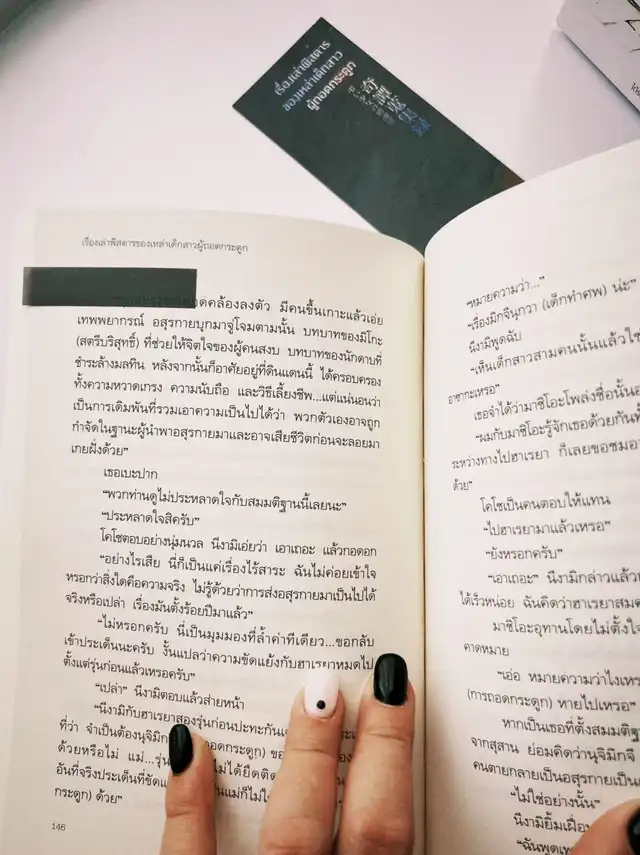 เรื่องเล่าพิสดาร
ของเหล่าเด็กสาว
ผู้ถอดกระดูก
เรื่องเล่าพิสดารของเหล่าเด็กสาวผู้ถอดกระดูก
คล้องลงตัว มีคนขึ้นเกาะแล้วเอ่ย
เทพพยากรณ์ อสุรกายบุกมาจู่โจมตามนั้น บทบาทของมิโกะ
(สตรีบริสุทธิ์) ที่ช่วยให้จิตใจของผู้คนสงบ บทบาทของนักดาบที่
ชำระล้างมลทิน หลังจากนั้นก็อาศัยอยู่ที่ดินแดนนี้ ได้ครอบครอง
ทั้งความหวาดเกรง ความนับถือ และวิธีเลี้ยงชีพ...แต่แน่นอนว่า
เป็นการเดิมพันที่รวมเอาความเป็นไปได้ว่า พวกตัวเองอาจถูก
กำจัดในฐานะผู้นำพาอสุรกายมาและอาจเสียชีวิตก่อนจะลอยมา
เกยฝั่งด้วย”
เธอเบะปาก
“พวกท่านดูไม่ประหลาดใจกับสมมติฐานนี้เลยนะ”
“ประหลาดใจสิครับ”
โคโชตอบอย่างนุ่มนวล นีงามิเอ่ยว่า เอาเถอะ แล้วกอดอก
“อย่างไรเสีย นี่ก็เป็นแค่เรื่องไร้สาระ ฉันไม่ค่อยเข้าใจ
หรอกว่าสิ่งใดคือความจริง ไม่รู้ด้วยว่าการส่งอสุรกายมาเป็นไปได้
จริงหรือเปล่า เรื่องมันตั้งร้อยปีมาแล้ว”
“ไม่หรอกครับ นี่เป็นมุมมองที่ล้ำค่าทีเดียว...ขอกลับ
เข้าประเด็นนะครับ งั้นแปลว่าความขัดแย้งกับฮาเรยาหมดไป
ตั้งแต่รุ่นก่อนแล้วเหรอครับ”
“เปล่า” นีงามิตอบแล้วส่ายหน้า
“นีงามิกับฮาเรยาสองรุ่นก่อนปะทะกัน
ที่ว่า จำเป็นต้องนุจิมิกจี (การถอดกระดูก)
ด้วยหรือไม่ แม่...รุ่น ไม่ได้ยึดติด
อันที่จริงประเด็นที่ขัด แม่ก็ไม่
กระดูก) ด้วย”
146
“หมายความว่า...”
“เรื่องมิกจีนุกวา (เด็กทำศพ) น่ะ”
นีงามิพูดฉับ
“เห็นเด็กสาวสามคนนั้นแล้วใช่
อาซากะเหรอ”
เธอจำได้ว่ามาซิโอะโพล่งชื่อนั้น
“ผมกับมาซิโอะรู้จักเธอด้วยกัน
ระหว่างทางไปฮาเรยา ก็เลยขอชม
ด้วย”
โคโชเป็นคนตอบให้แทน
“ไปฮาเรยามาแล้วเหรอ”
“ยังหรอกครับ”
“เอาเถอะ” นีงามิกล่าวแล้ว
ได้เร็วหน่อย ฉันคิดว่าฮาเรยา
มาซิโอะอุทานโดยไม่ตั้งใจ
คาดหมาย
“เอ่อ หมายความว่าไง
(การถอดกระดูก) หายไปเหรอ”
หากเป็นเธอที่ตั้งสมมติ
จากสุสาน ย่อมคิดว่านุจิมิกจี
คนตายกลายเป็นอสุรกายเป็น
“ไม่ใช่อย่างนั้น”
นีงามิยิ้มเฝื่อน
“ฉันพูด